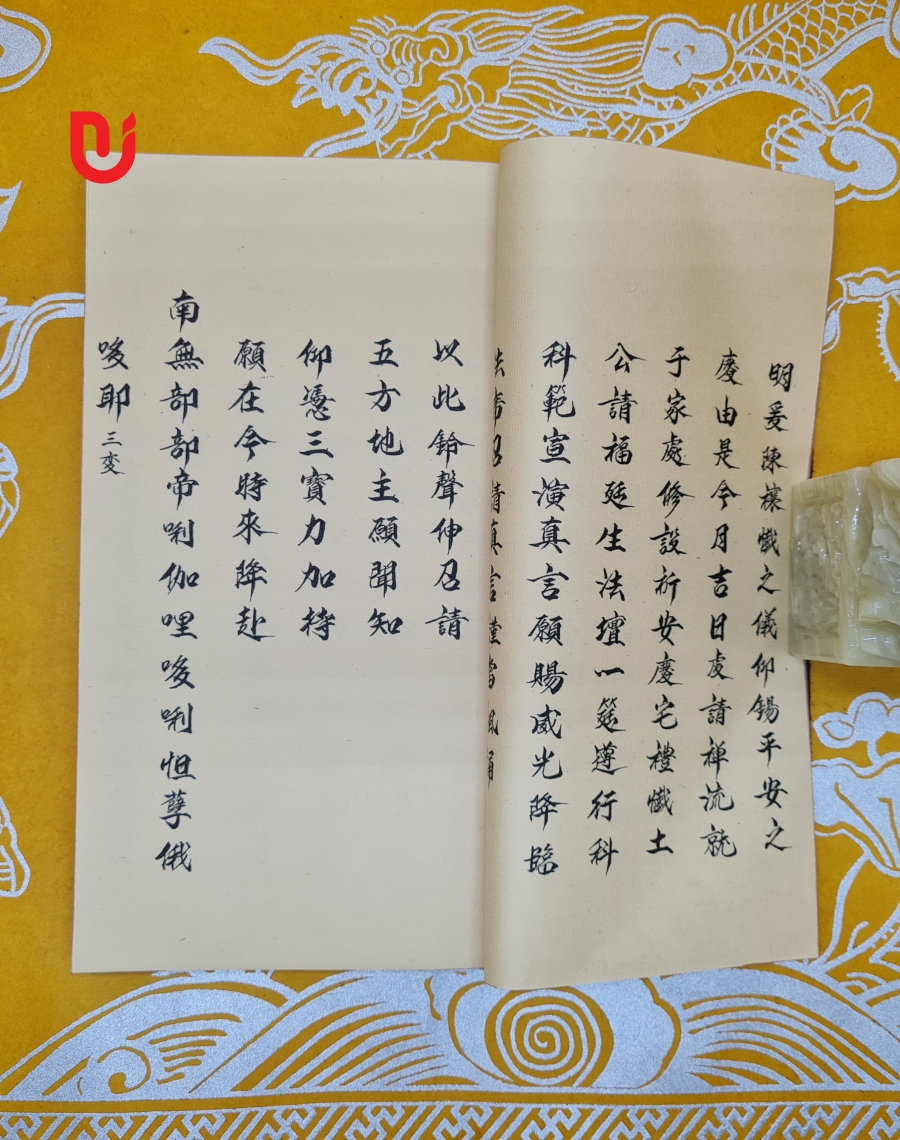 明爰陳禳懺之儀仰錫平安之
慶由是今月吉日虔請禅流就
于家處修設祈安慶宅禮懺土
公請福延生法壇一筵遵行科
科範宣演真言願賜威光降臨
召請真言謹當諷誦
以此鈴聲伸召請
五方地主願聞知
仰憑三寶力加持
願在今時來降赴
南無部部帝唎伽哩哆唎怛孽俄
哆耶三変